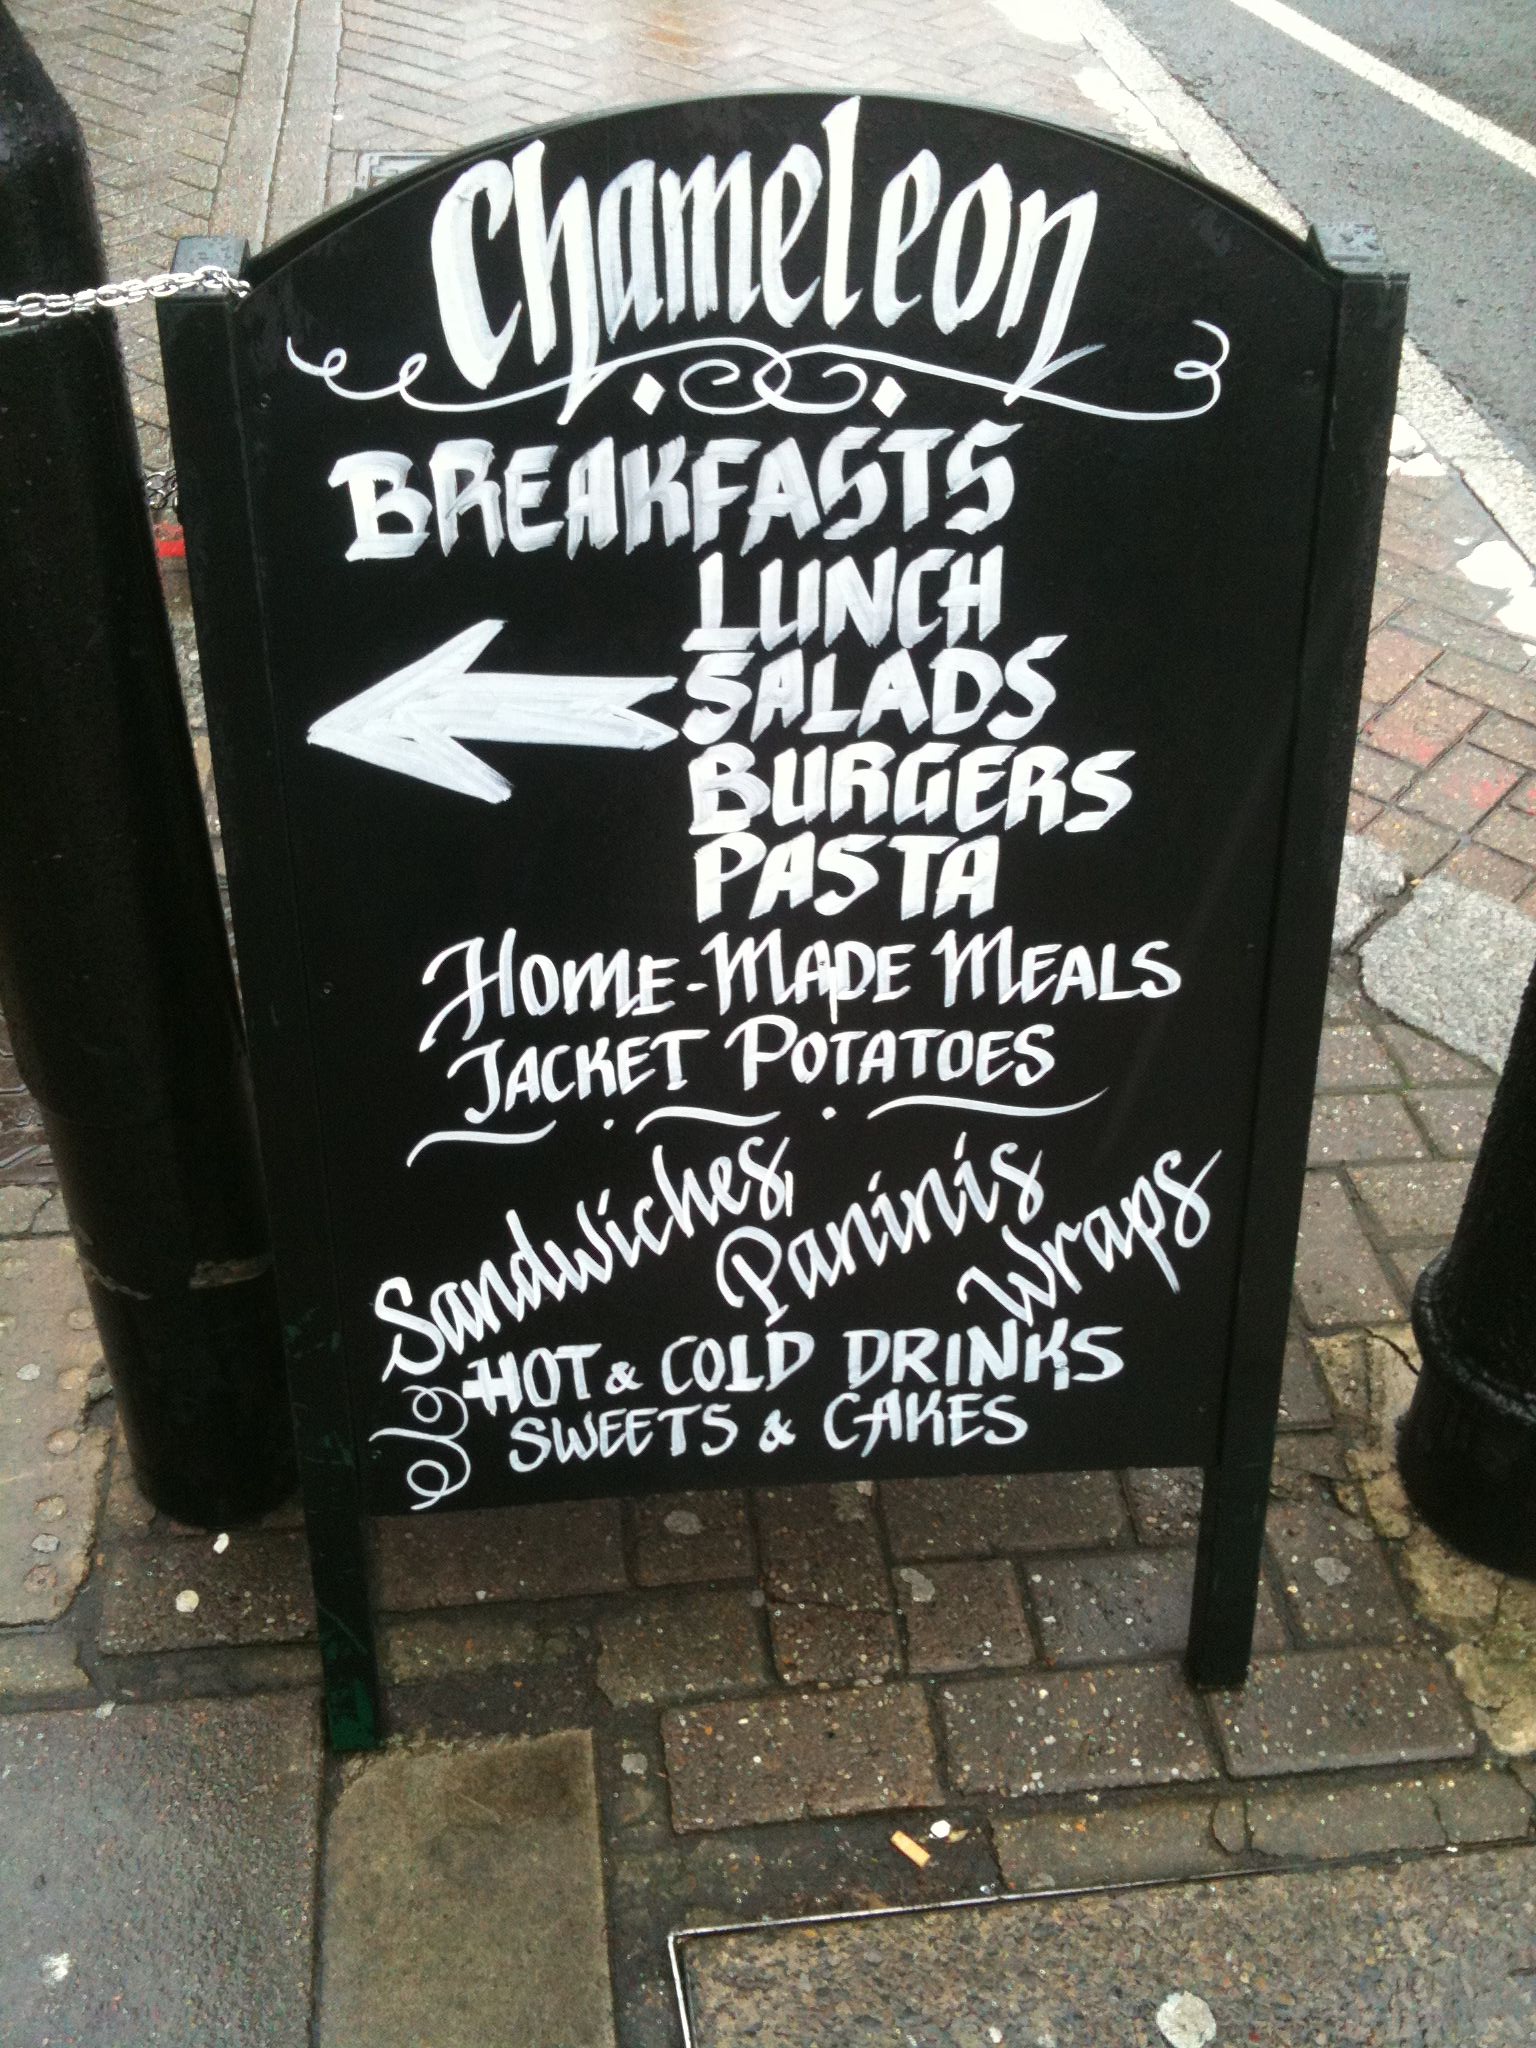 Chameleon
BREAKFASTS
LUNCH
SALADS
BURGERS
PASTA
HOME-MADE MEALS
JACKET POTATOES
Sandwiches,
Paninis
Wraps
HOT & COLD DRINKS
SWEETS & CAKES